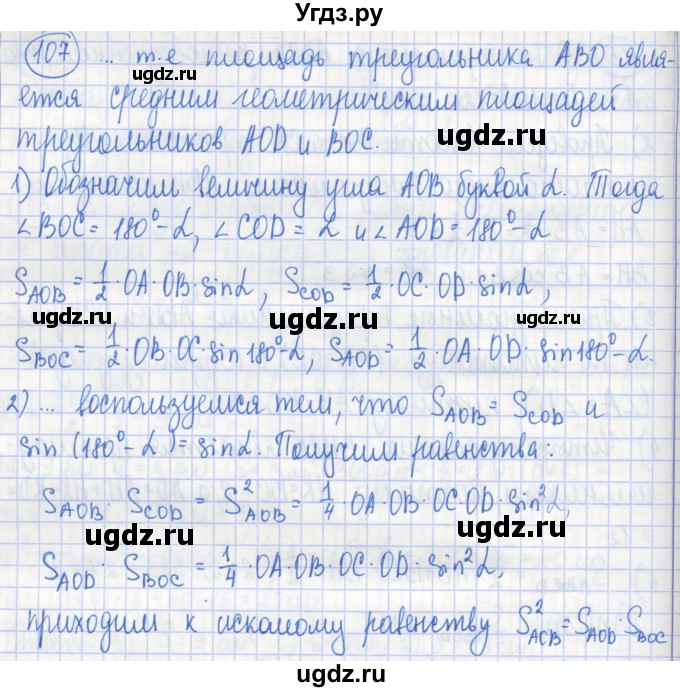 Угдз.ру
107 ... т.е площадь треугольника ABO явля-
ugdz.ru
ется средним геометрическим площадей
ugdz.ru
треугольников AOD и BOC.
1) Обозначим величину угла AOB буквой α. Тогда
∠BOC = 180° - α, ∠COD = α и ∠AOD = 180° - α
ugdz.ru
S_AOB = 1/2 · OA · OB · sin α, S_COD = 1/2 · OC · OD · sin α,
ugdz.ru ugdz.ru
S_BOC = 1/2 · OB · OC · sin 180° - α, S_AOD = 1/2 · OA · OD · sin 180° - α.
ugdz.ru
2) ... воспользуемся тем, что S_AOB = S_COD и
sin (180° - α) = sin α. Получим равенства:
ugdz.ru
S_AOB · S_COD = S²_AOB = 1/4 · OA · OB · OC · OD · sin² α,
ugdz.ru ugdz.ru
S_AOD · S_BOC = 1/4 · OA · OB · OC · OD · sin² α,
приходим к искомому равенству S²_AOB = S_AOD · S_BOC
ugdz.ru ugdz.ru